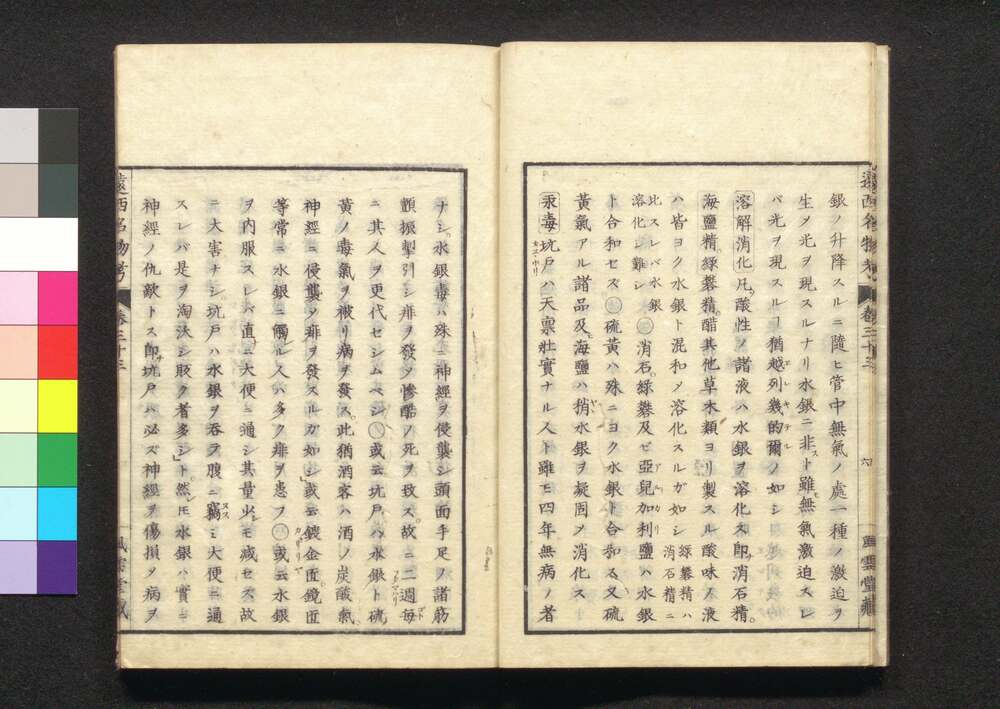 遠西名物考 卷三十三 六 風雲堂藏
銀ノ升降スルニ隨ヒ管中無氣ノ處一種ノ激迫ヲ
生メ光ヲ現スルナリ水銀ニ非スト雖モ無氣激迫スレ
バ光ヲ現スルヿ猶越列幾的爾ノ如シ
エレキテル
溶解消化 凡ソ酸性ノ諸液ハ水銀ヲ溶化ス即チ消石精。
海鹽精。綠礬精。醋其他草木類ヨリ製スル酸味ノ液
ハ皆ヨク水銀ト混和メ溶化スルガ如シ 綠礬精ハ消石精ニ
比スレバ水銀溶化シ難シ 消石。綠礬及ビ亞兒加利鹽ハ水銀
アルカリ
ト合和セズ 硫黃ハ殊ニヨク水銀ト合和ス又硫
黃氣アル諸品及ビ海鹽ハ稍水銀ヲ凝固メ消化ス
汞毒 坑戸ハ天禀壯實ナル人ト雖モ四年無病ノ者
カネホリ
ナシ。水銀毒ハ殊ニ神經ヲ侵襲シ頭面手足ノ諸筋
顫振掣引シ痱ヲ發シ慘酷ノ死ヲ致ス。故ニ二週每
ニ其人ヲ更代セシムベシ 或云坑戸ハ水銀ト硫
黃ノ毒氣ヲ被リ病ヲ發ス。此猶酒客ハ酒ノ炭酸氣
神經ニ侵襲メ痱ヲ發スルガ如シ」或云鍍金匠鏡匠
等常ニ水銀ニ觸ルル人ハ多ク痱ヲ患フ 或云水銀
ヲ內服スレバ直チニ大便ニ通シ其量少シモ減セズ故
ニ大害ナシ坑戸ハ水銀ヲ吞テ腹ニ竊ミ大便ニ通
ヌス
スレバ是ヲ淘汰シ取ク者多シト」然レ𪜈水銀ハ實ニ
神經ノ仇敵トス即チ坑戸ハ必ズ神經ヲ傷損メ病ヲ
遠西名物考 卷三十三 風雲堂藏